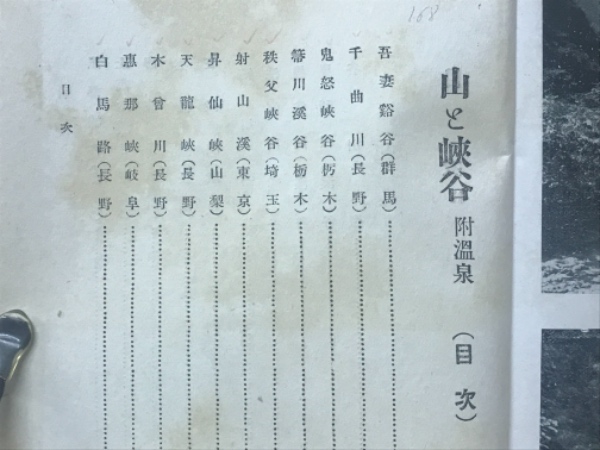 168
山と峽谷 附溫泉 (目次)
吾妻谿谷(群馬)
千曲川(長野)
鬼怒峽谷(栃木)
箒川溪谷(栃木)
秩父峽谷(埼玉)
射山溪(東京)
昇仙峽(山梨)
天龍峽(長野)
木曾川(長野)
惠那峽(岐阜)
白馬路(長野)
目次